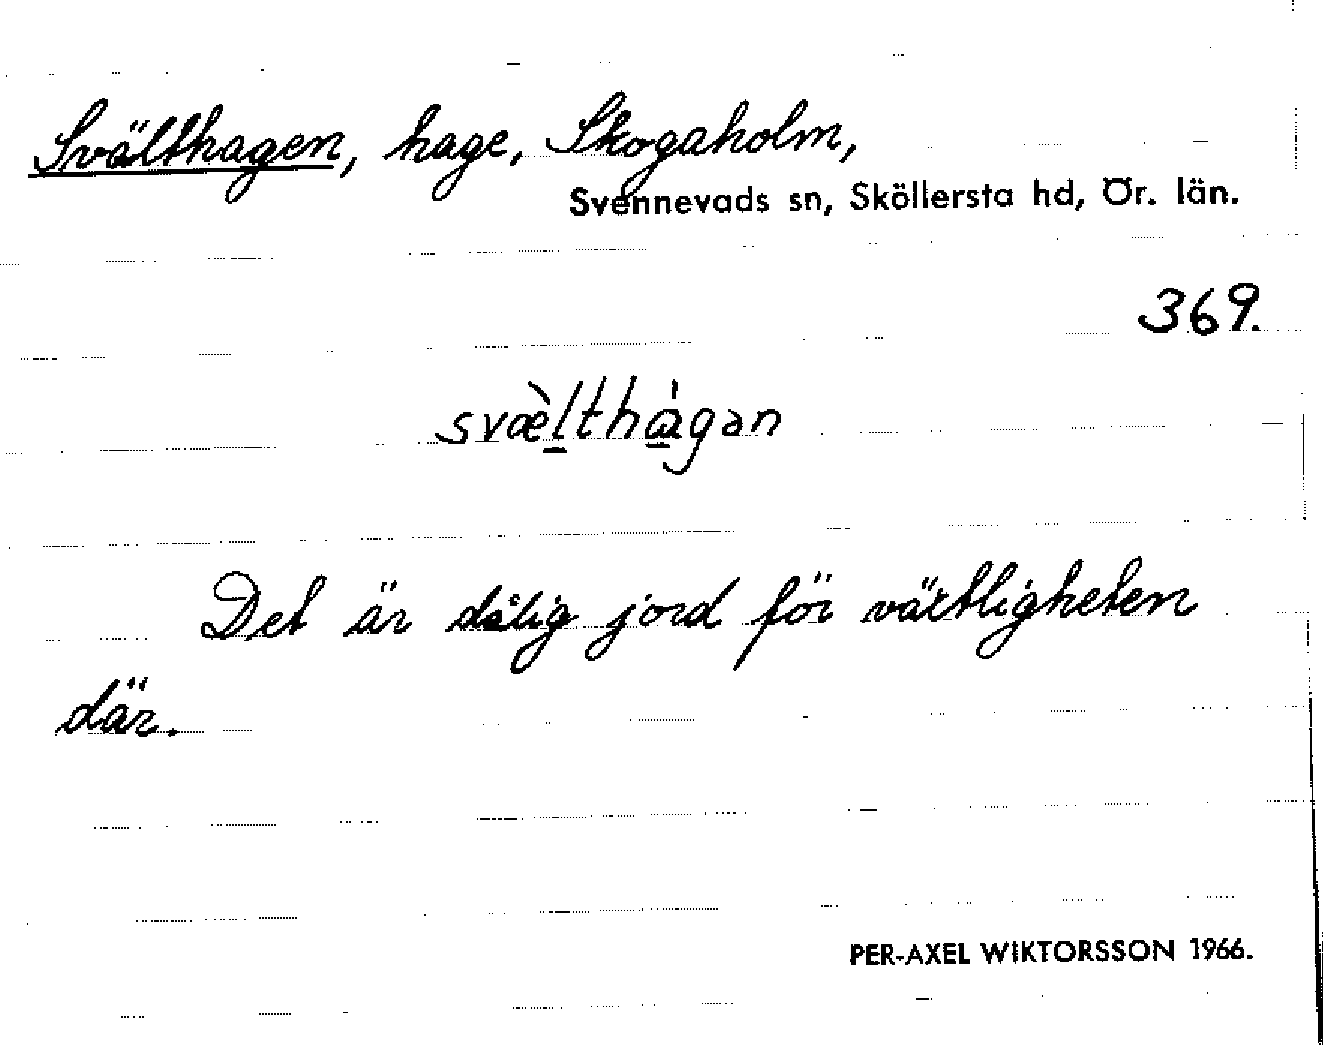 Svälthagen, hage, Skogaholm,
Svennevads sn, Sköllersta hd, Ör. län.
369.
svæ̀ltha̍gan
Det är dålig jord för växtligheten
där.
PER-AXEL WIKTORSSON 1966.